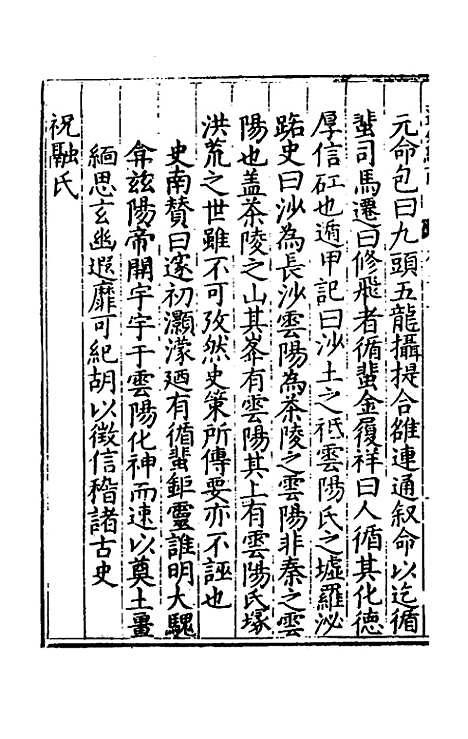 元命包曰九頭五龍攝提合雒連通叙命以迄循
蜚司馬遷曰修飛者循蜚金履祥曰人循其化德
厚信矼也遁甲記曰沙土之祇雲陽氏之墟羅泌
路史曰沙為長沙雲陽為茶陵之雲陽非秦之雲
陽也盖茶陵之山其峯有雲陽其上有雲陽氏塚
洪荒之世雖不可攷然史策所傳要亦不誣也
史南賛曰邃初灝濛廼有循蜚鉅靈誰明大騩
弇兹陽帝開宇宇于雲陽化神而速以奠土畺
緬思玄幽遐靡可紀胡以徵信稽諸古史
祝融氏